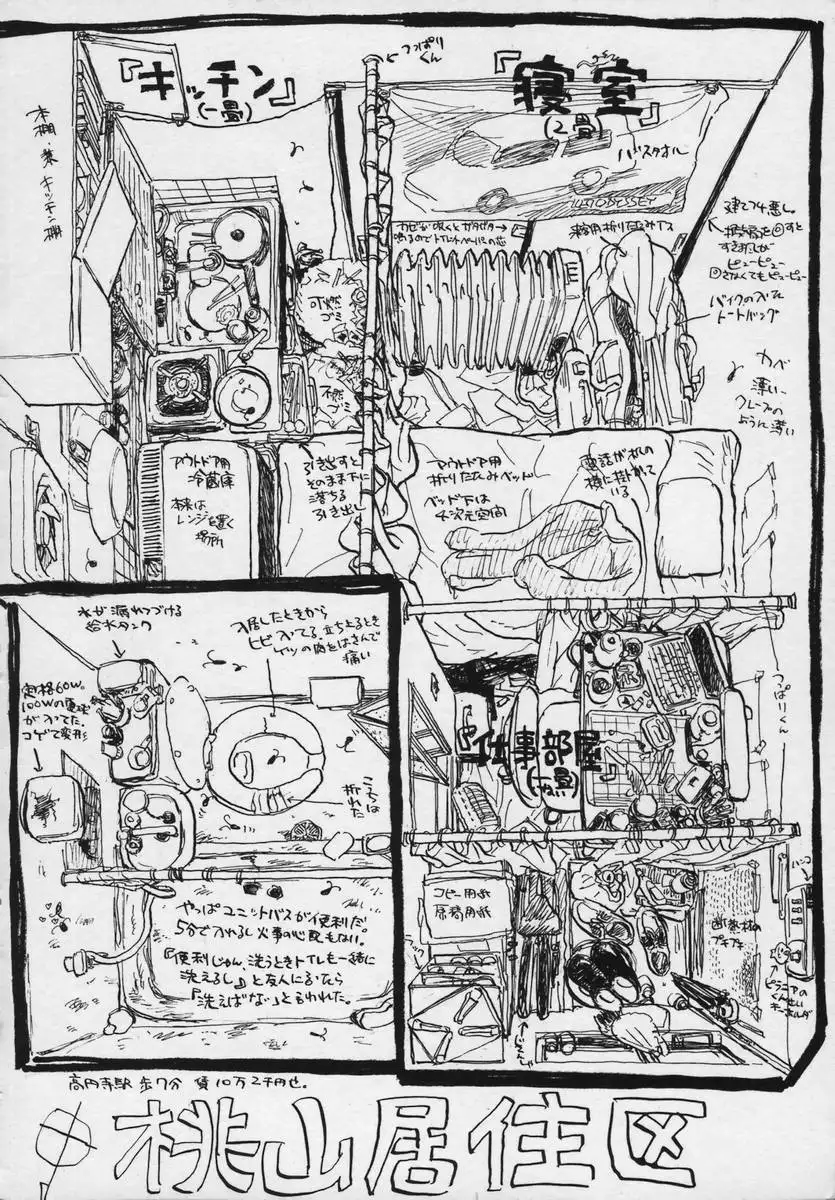 つっぱりくん
『キッチン』
(一畳)
『寝室』
(2畳)
本棚・兼・キッチン棚
バスタオル
カゼが吹くとガタガタ
鳴るのでトイレットペーパーの芯
来客用折りたたみイス
建てつけ悪し。
ピューピュー
さなくてもピューピュー
バイクの入れた
トートバッグ
カベ
薄い、
クレープの
ように薄い
可燃
ゴミ
不燃
ゴミ
アウトドア用
冷蔵庫
本来は
レンジを置く
場所
引き出すと
そのまま下に
落ちる
引き出し
アウトドア用
折りたたみベッド
ベッド下は
4次元空間
電話が机の
横に掛かって
いる
水が漏れつづける
給水タンク
定格60W。
100Wの電球
が入ってた。
コゲて変形
入居したときから
ヒビ入ってる。立ち上るとき
ケツの肉をはさんで
痛い
こっちは
折れた
つっぱりくん
『仕事部屋』
コピー用紙
原稿用紙
断熱材の
プチプチ
ピラニアの
キーホルダ
やっぱユニットバスが便利だ
5分で入れるし火事の心配もない。
『便利じゃん、洗うときトイレも一緒に
洗えるし』と友人に言ったら
『洗えばな』と言われた。
高円寺駅 歩7分 賃10万2千円也。
桃山居住区